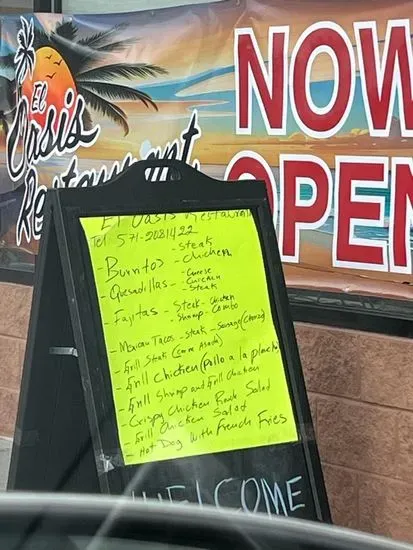 El Oasis Restaurant
NOW
OPEN
El Oasis Restaurant
Tel 571-2081422
- Burritos - steak
- chicken
- Quesadillas - cheese
- chicken
- steak
- Fajitas - Steak - Chicken
- Shrimp - Combo
- Mexican Tacos - steak - Sausage (Chorizo)
- Grill Steak (carne Asada)
- Grill Chicken (Pollo a la plancha)
- Grill Shrimp and Grill chicken
- Crispy Chicken Salad
- Grill Chicken Salad
- Hot Dog with French Fries
WELCOME